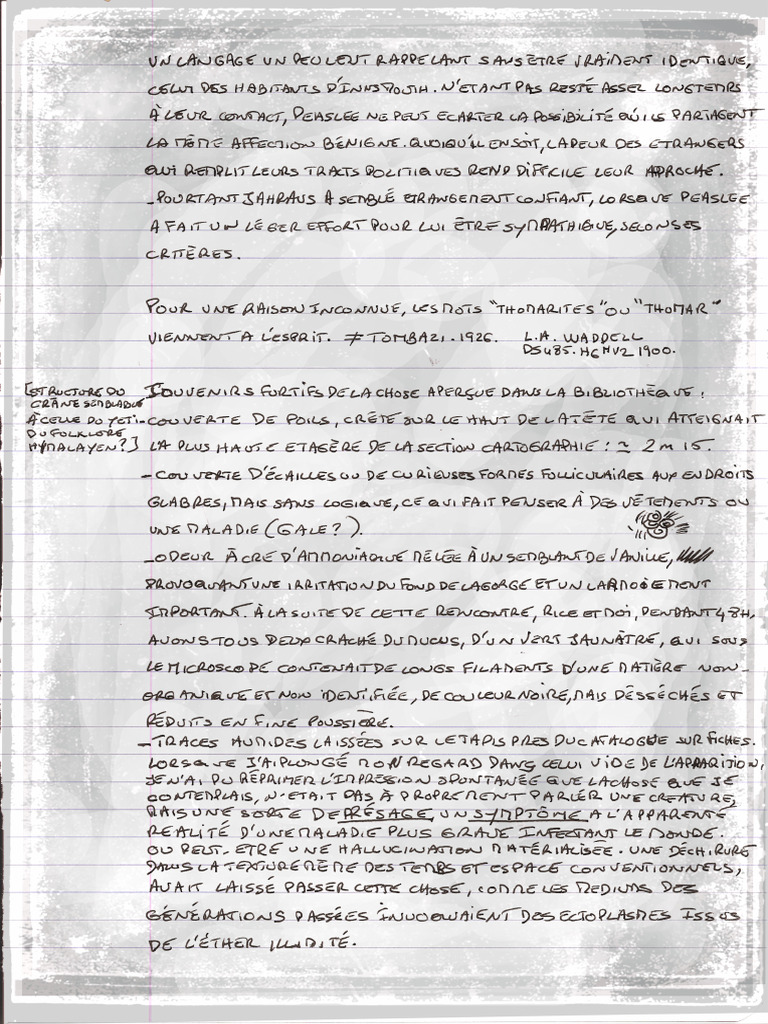 UN LANGAGE UN PEU LENT RAPPELANT SANS ÊTRE VRAIMENT IDENTIQUE,
CELUI DES HABITANTS D'INNSMOUTH. N'ETANT PAS RESTÉ ASSEZ LONGTEMPS
À LEUR CONTACT, PEASLEE NE PEUT ECARTER LA POSSIBILITÉ QU'ILS PARTAGENT
LA MÊME AFFECTION BÉNIGNE. QUOIQU'IL EN SOIT, LA PEUR DES ETRANGERS
QUI REMPLIT LEURS TRACTS POLITIQUES REND DIFFICILE LEUR APROCHE.
-POURTANT JAHRAUS A SEMBLÉ ETRANGEMENT CONFIANT, LORSQUE PEASLEE
A FAIT UN LÉGER EFFORT POUR LUI ÊTRE SYMPATHIQUE, SELON SES
CRITÈRES.
POUR UNE RAISON INCONNUE, LES MOTS "THOMARITES" OU "THOMAR"
VIENNENT A L'ESPRIT. ≠ TOMBAZI. 1926. L.A. WADDELL
DS485.H6HV2 1900.
[STRUCTURE DU
CRÂNE SEMBLABLE
À CELLE DU YETI
DU FOLKLORE
HYMALAYEN?]
SOUVENIRS FURTIFS DE LA CHOSE APERÇUE DANS LA BIBLIOTHÈQUE :
-COUVERTE DE POILS, CRÊTE SUR LE HAUT DE LA TÊTE QUI ATTEIGNAIT
LA PLUS HAUTE ETAGÈRE DE LA SECTION CARTOGRAPHIE : ≃ 2 m 15.
-COUVERTE D'ÉCAILLES OU DE CURIEUSES FORMES FOLLICULAIRES AUX ENDROITS
GLABRES, MAIS SANS LOGIQUE, CE QUI FAIT PENSER À DES VÊTEMENTS OU
UNE MALADIE (GALE?).
-ODEUR ÂCRE D'AMMONIAQUE MÊLÉE À UN SEMBLANT DE VANILLE,
PROVOQUANT UNE IRRITATION DU FOND DE LA GORGE ET UN LARMOIEMENT
IMPORTANT. À LA SUITE DE CETTE RENCONTRE, RICE ET MOI, PENDANT 48H,
AVONS TOUS DEUX CRACHÉ DU MUCUS, D'UN VERT JAUNÂTRE, QUI SOUS
LE MICROSCOPE CONTENAIT DE LONGS FILAMENTS D'UNE MATIÈRE NON-
ORGANIQUE ET NON IDENTIFIÉE, DE COULEUR NOIRE, MAIS DÉSSÉCHÉS ET
RÉDUITS EN FINE POUSSIÈRE.
-TRACES HUMIDES LAISSÉES SUR LE TAPIS PRES DU CATALOGUE SUR FICHES.
LORSQUE J'AI PLONGÉ MON REGARD DANS CELUI VIDE DE L'APPARITION,
JE N'AI PU RÉPRIMER L'IMPRESSION SPONTANÉE QUE LA CHOSE QUE JE
CONTEMPLAIS, N'ETAIT PAS À PROPREMENT PARLER UNE CREATURE,
MAIS UNE SORTE DE PRÉSAGE, UN SYMPTÔME A L'APPARENTE
REALITÉ D'UNE MALADIE PLUS GRAVE INFECTANT LE MONDE.
OU PEUT-ÊTRE UNE HALLUCINATION MATÉRIALISÉE. UNE DÉCHIRURE
DANS LA TEXTURE MÊME DES TEMPS ET ESPACE CONVENTIONNELS,
AVAIT LAISSÉ PASSER CETTE CHOSE, COMME LES MEDIUMS DES
GÉNÉRATIONS PASSÉES INVOQUAIENT DES ECTOPLASMES ISSUS
DE L'ÉTHER ILLIMITÉ.